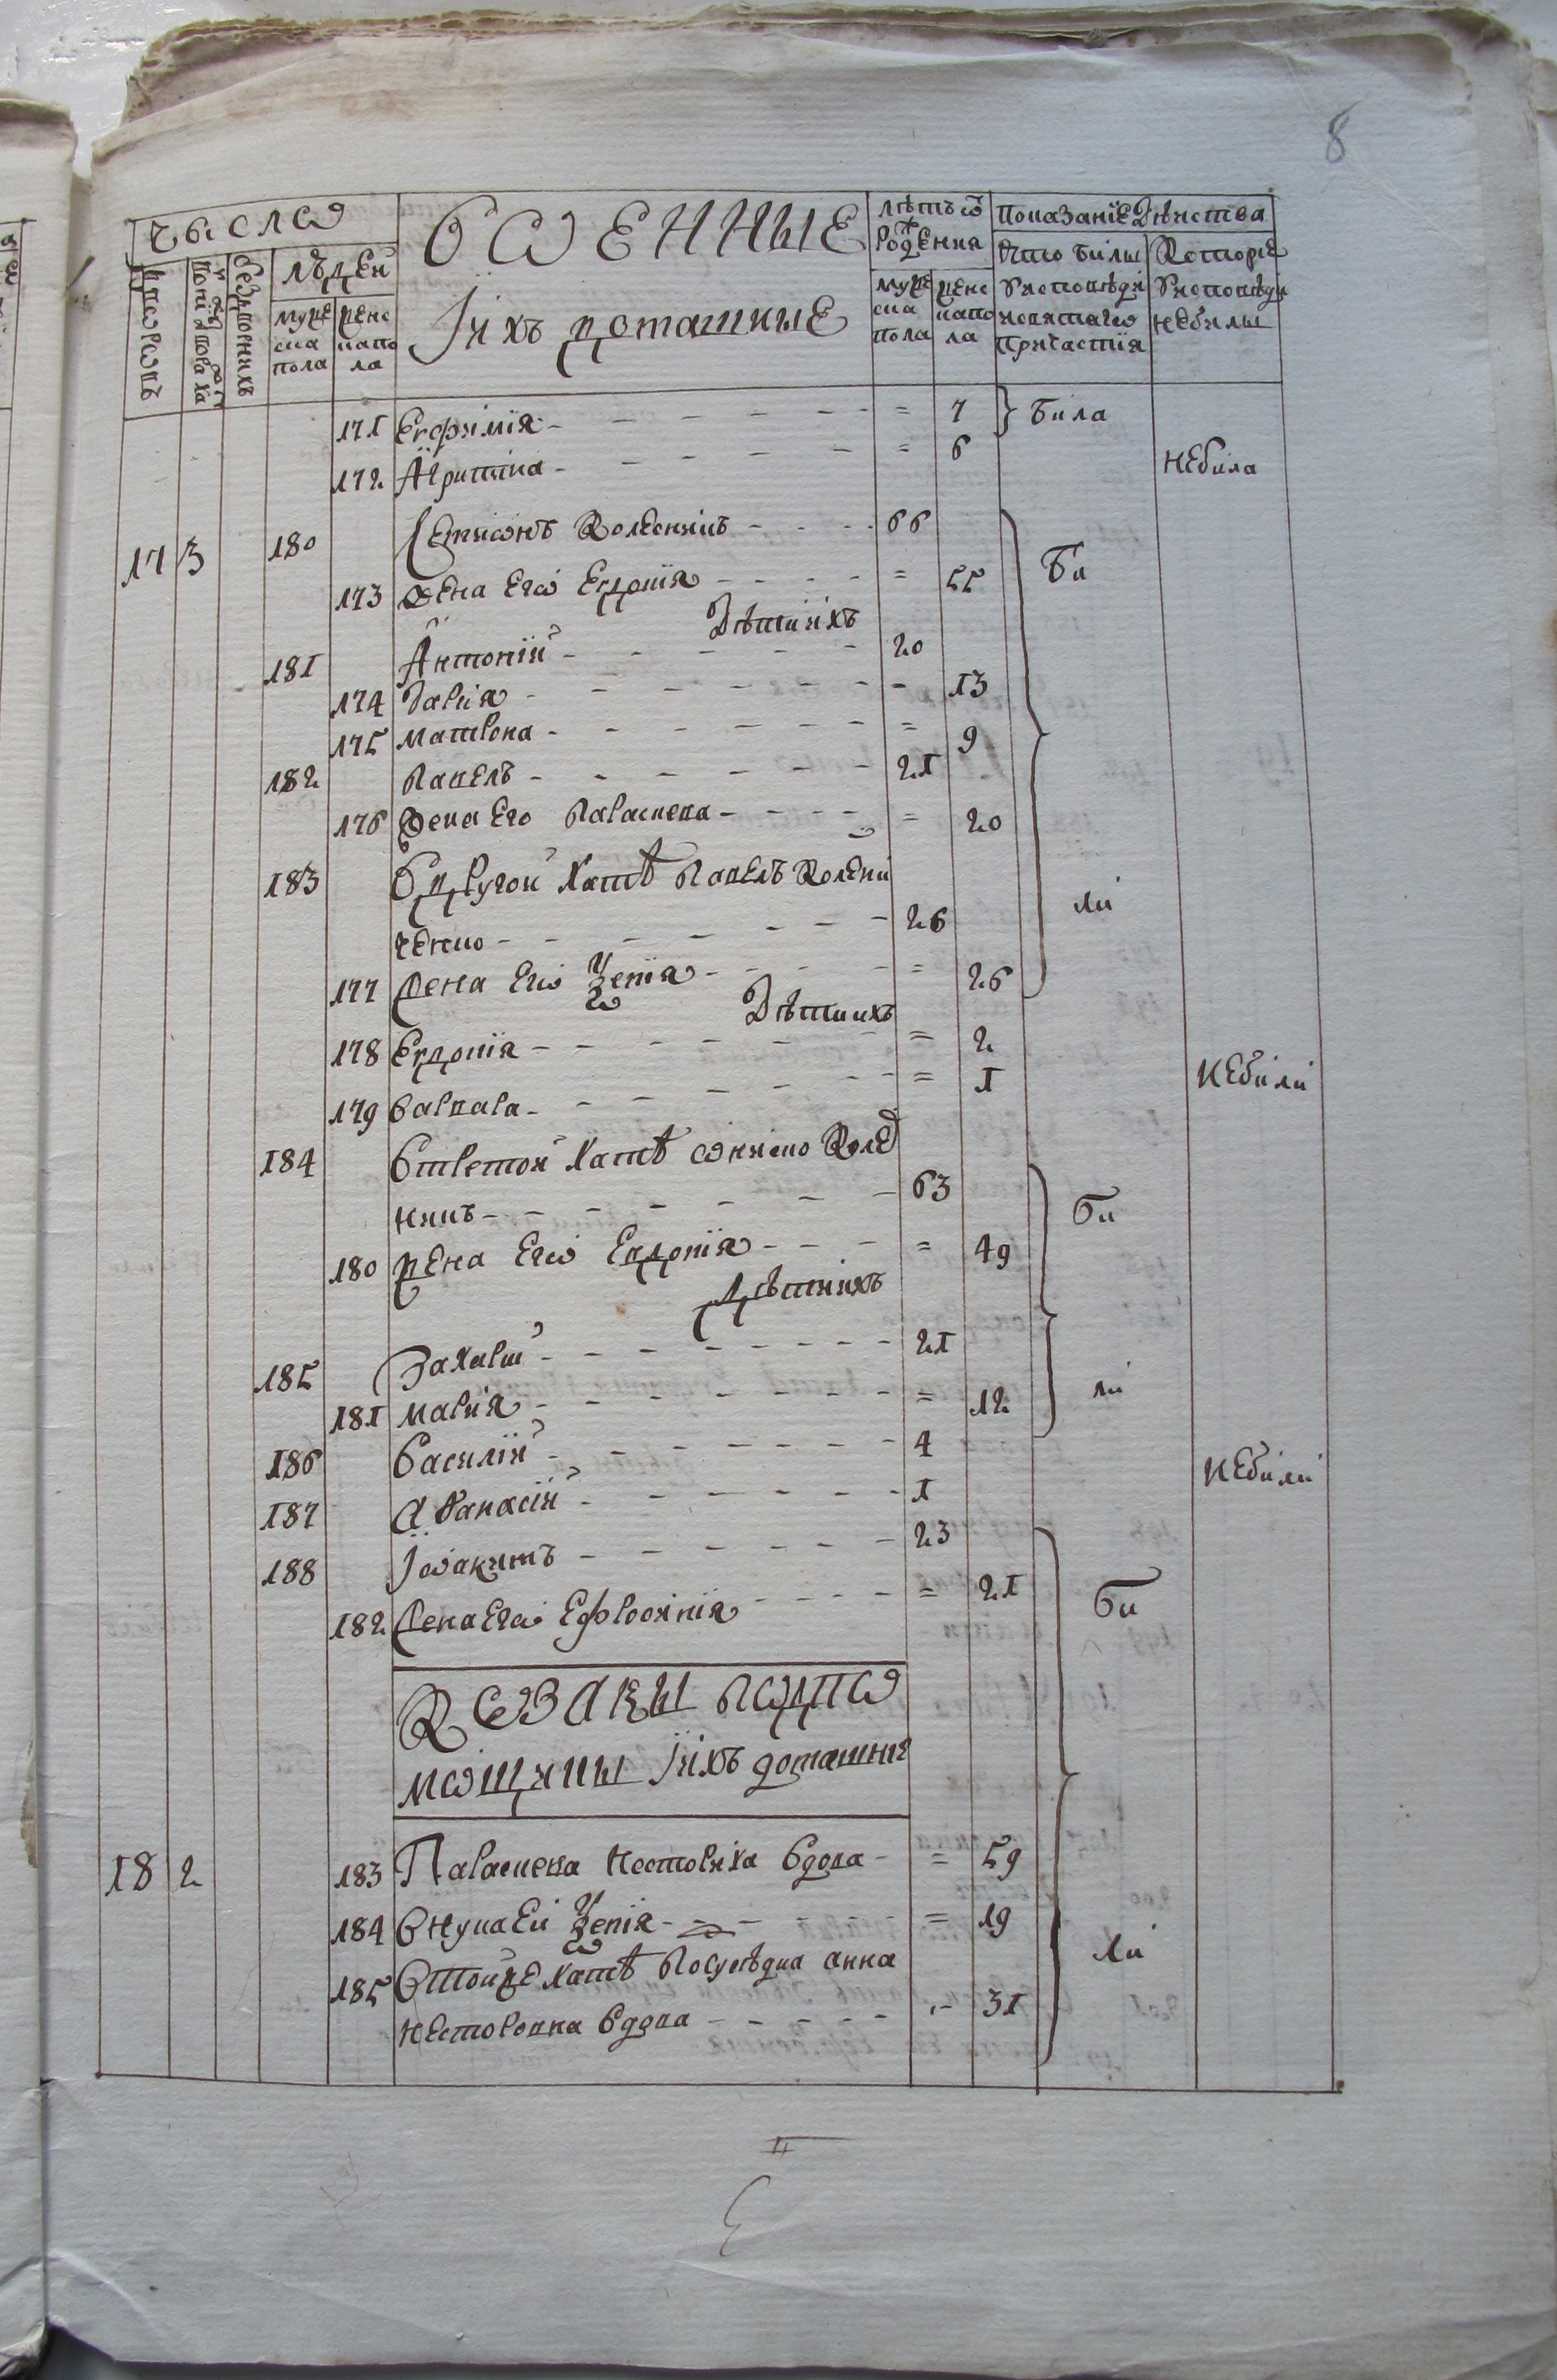 8
числω
ВωЕННЫЕ
Їихъ домашные
лѣтъ ѿ рождениа
показанїе дѣиства
дворовъ
бездворнихъ
людеи
мужеска пола
женска пола
мужеска пола
женска пола
Кто били у исповѣди и святагω причастїя
Которїе у исповѣди небылы
171 Евфимїя - = 7 Била
172 Агрипина - = 6 Небила
17 3 180 Семиωнъ Колесникъ - 66 Би
173 Жена Егω Евдокїя - = 55
Дѣти ихъ
181 Антонїй - 20
174 Дарїя - 13
175 Матрона - = 9
182 Павелъ - 21
176 Жена Его Параскева - = 20
183 В другой хатѣ Павелъ Колѣсни ли
ченко - 26
177 Жена Егω Ксенїя - = 26
Дѣти ихъ
178 Евдокїя - = 2
Небили
179 Варвара - = 1
184 В третой хатѣ ωниско Колес
никъ - 63 Би
180 жена Егω Евдокїя - = 49
Дѣти ихъ
185 Захарїй - 21
181 Марїя - = 12 ли
186 Василїй - 4
Небили
187 Афанасїй - 1
188 Їωакимъ - 23
182 Жена Егω Ефросинїя - = 21 Би
КωЗАКЫ ПωДПω
МωЩНИКЫ Їихъ домашние
18 2 183 Параскева Несториха вдова - = 59
184 Внука Еи Ксенїя - = 19
185 В той же хатѣ Посусѣдка Анна ли
Несторовна вдова - 31